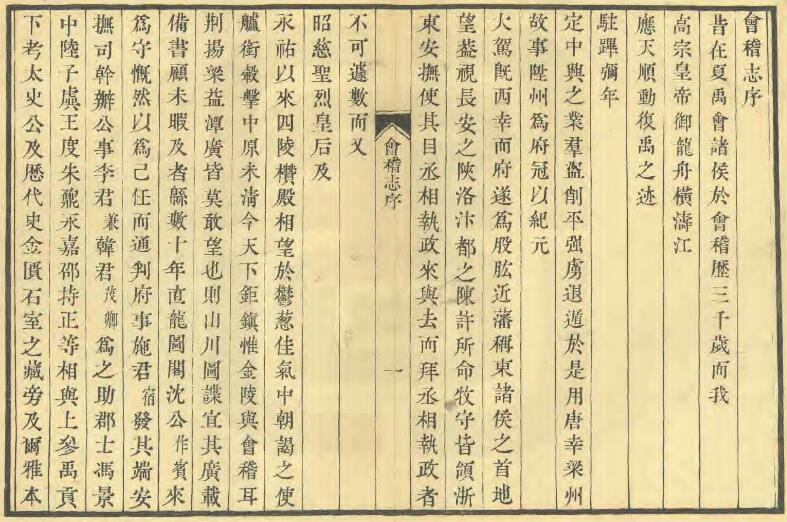 會稽志序
昔在夏禹會諸侯於會稽歷三千歲而我
高宗皇帝御龍舟橫濤江
應天順動復禹之迹
駐蹕彌年
定中興之業羣盜削平强虜退遁於是用唐幸梁州
故事陞州爲府冠以紀元
大駕既西幸而府遂爲股肱近藩稱東諸侯之首地
望葢視長安之陝洛汴都之陳許所命牧守皆領浙
東安撫使其自丞相執政來與去而拜丞相執政者
會稽志序
一
不可遽數而又
昭慈聖烈皇后及
永祐以來四陵欑殿相望於鬱葱佳氣中朝謁之使
艫銜轂擊中原未清今天下鉅鎮惟金陵與會稽耳
荆揚梁益潭廣皆莫敢望也則山川圖諜宜其廣載
備書顧未暇及者緜數十年直龍圖閣沈公作賓來
爲守慨然以爲己任而通判府事施君宿發其端安
撫司幹辦公事李君兼韓君茂卿爲之助郡士馮景
中陸子虡王度朱鼐永嘉邵持正等相與上參禹貢
下考太史公及歷代史金匱石室之藏旁及爾雅本